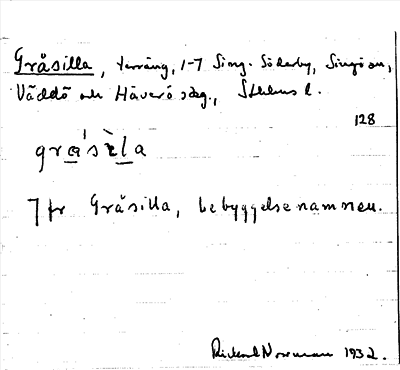 Gråsilla, terräng, 1-7 Sing. Söderby, Singö sn,
Väddö och Häverö skg., Sthlms l.
128
grǻsìla
7 fr Gråsilla, bebyggelsenamnen.
Rickard Norrman 1932.